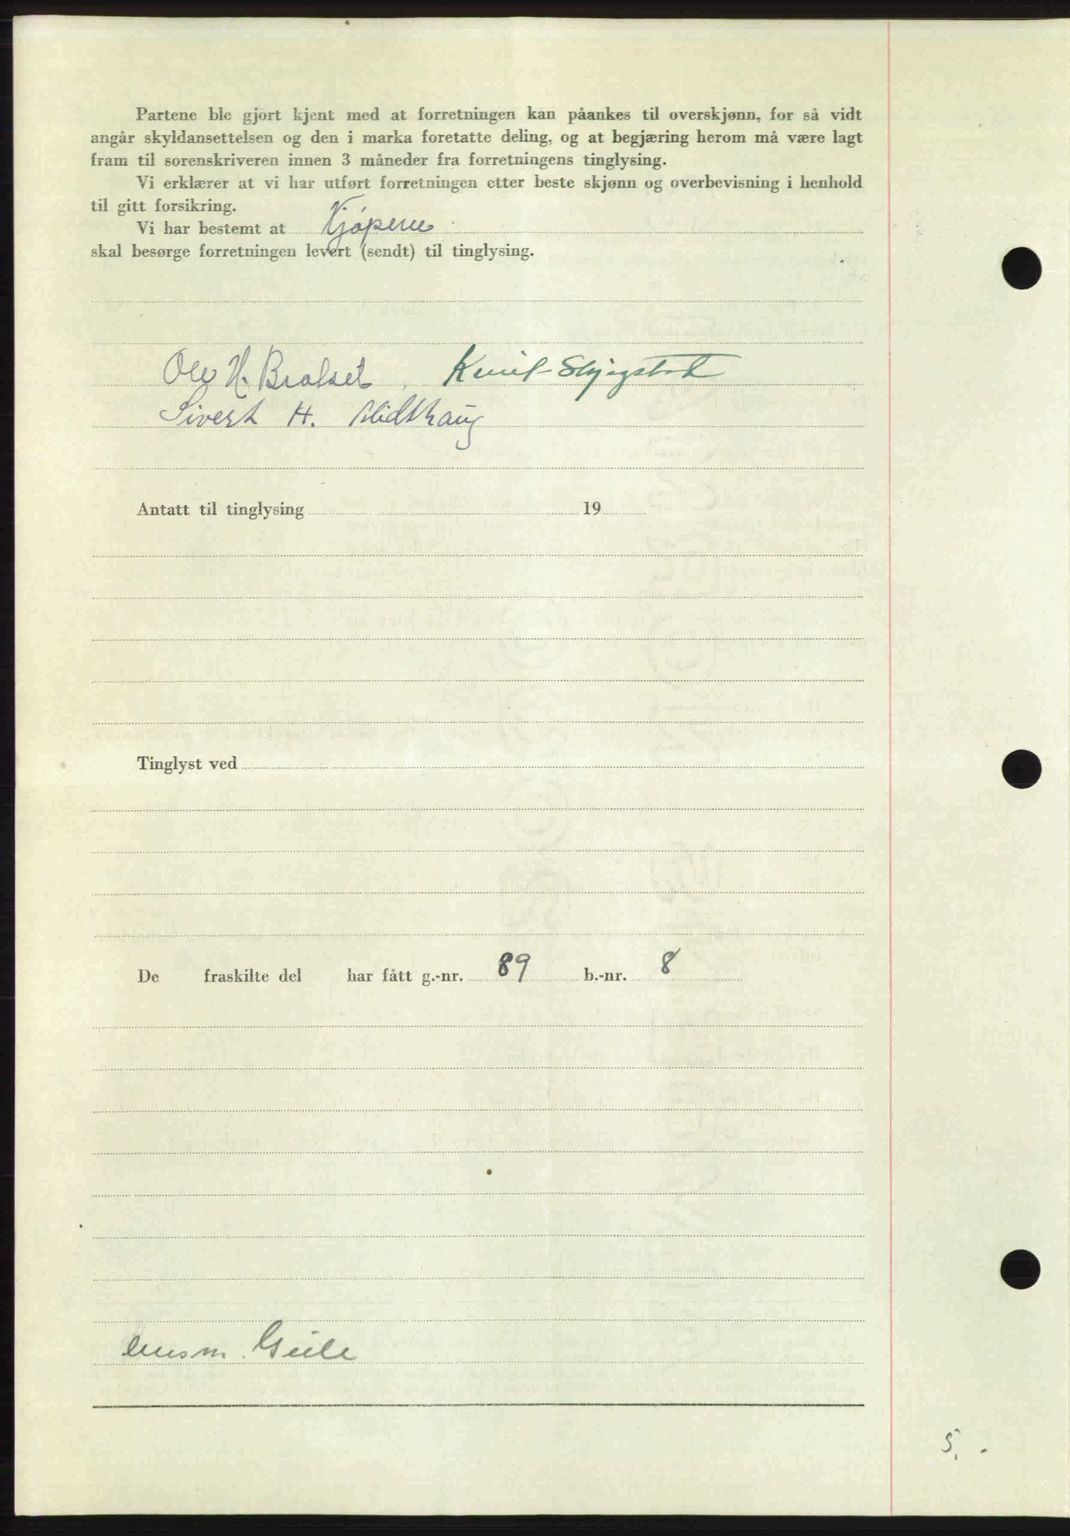 Partene ble gjort kjent med at forretningen kan påankes til overskjønn, for så vidt
angår skyldansettelsen og den i marka foretatte deling, og at begjæring herom må være lagt
fram til sorenskriveren innen 3 måneder fra forretningens tinglysing.
Vi erklærer at vi har utført forretningen etter beste skjønn og overbevisning i henhold
til gitt forsikring.
Vi har bestemt at Kjøperne
skal besørge forretningen levert (sendt) til tinglysing.
Ole H. Knut
Sivert H. Midthaug
Antatt til tinglysing 19
Tinglyst ved
De fraskilte del har fått g.-nr. 89 b.-nr. 8
5.-